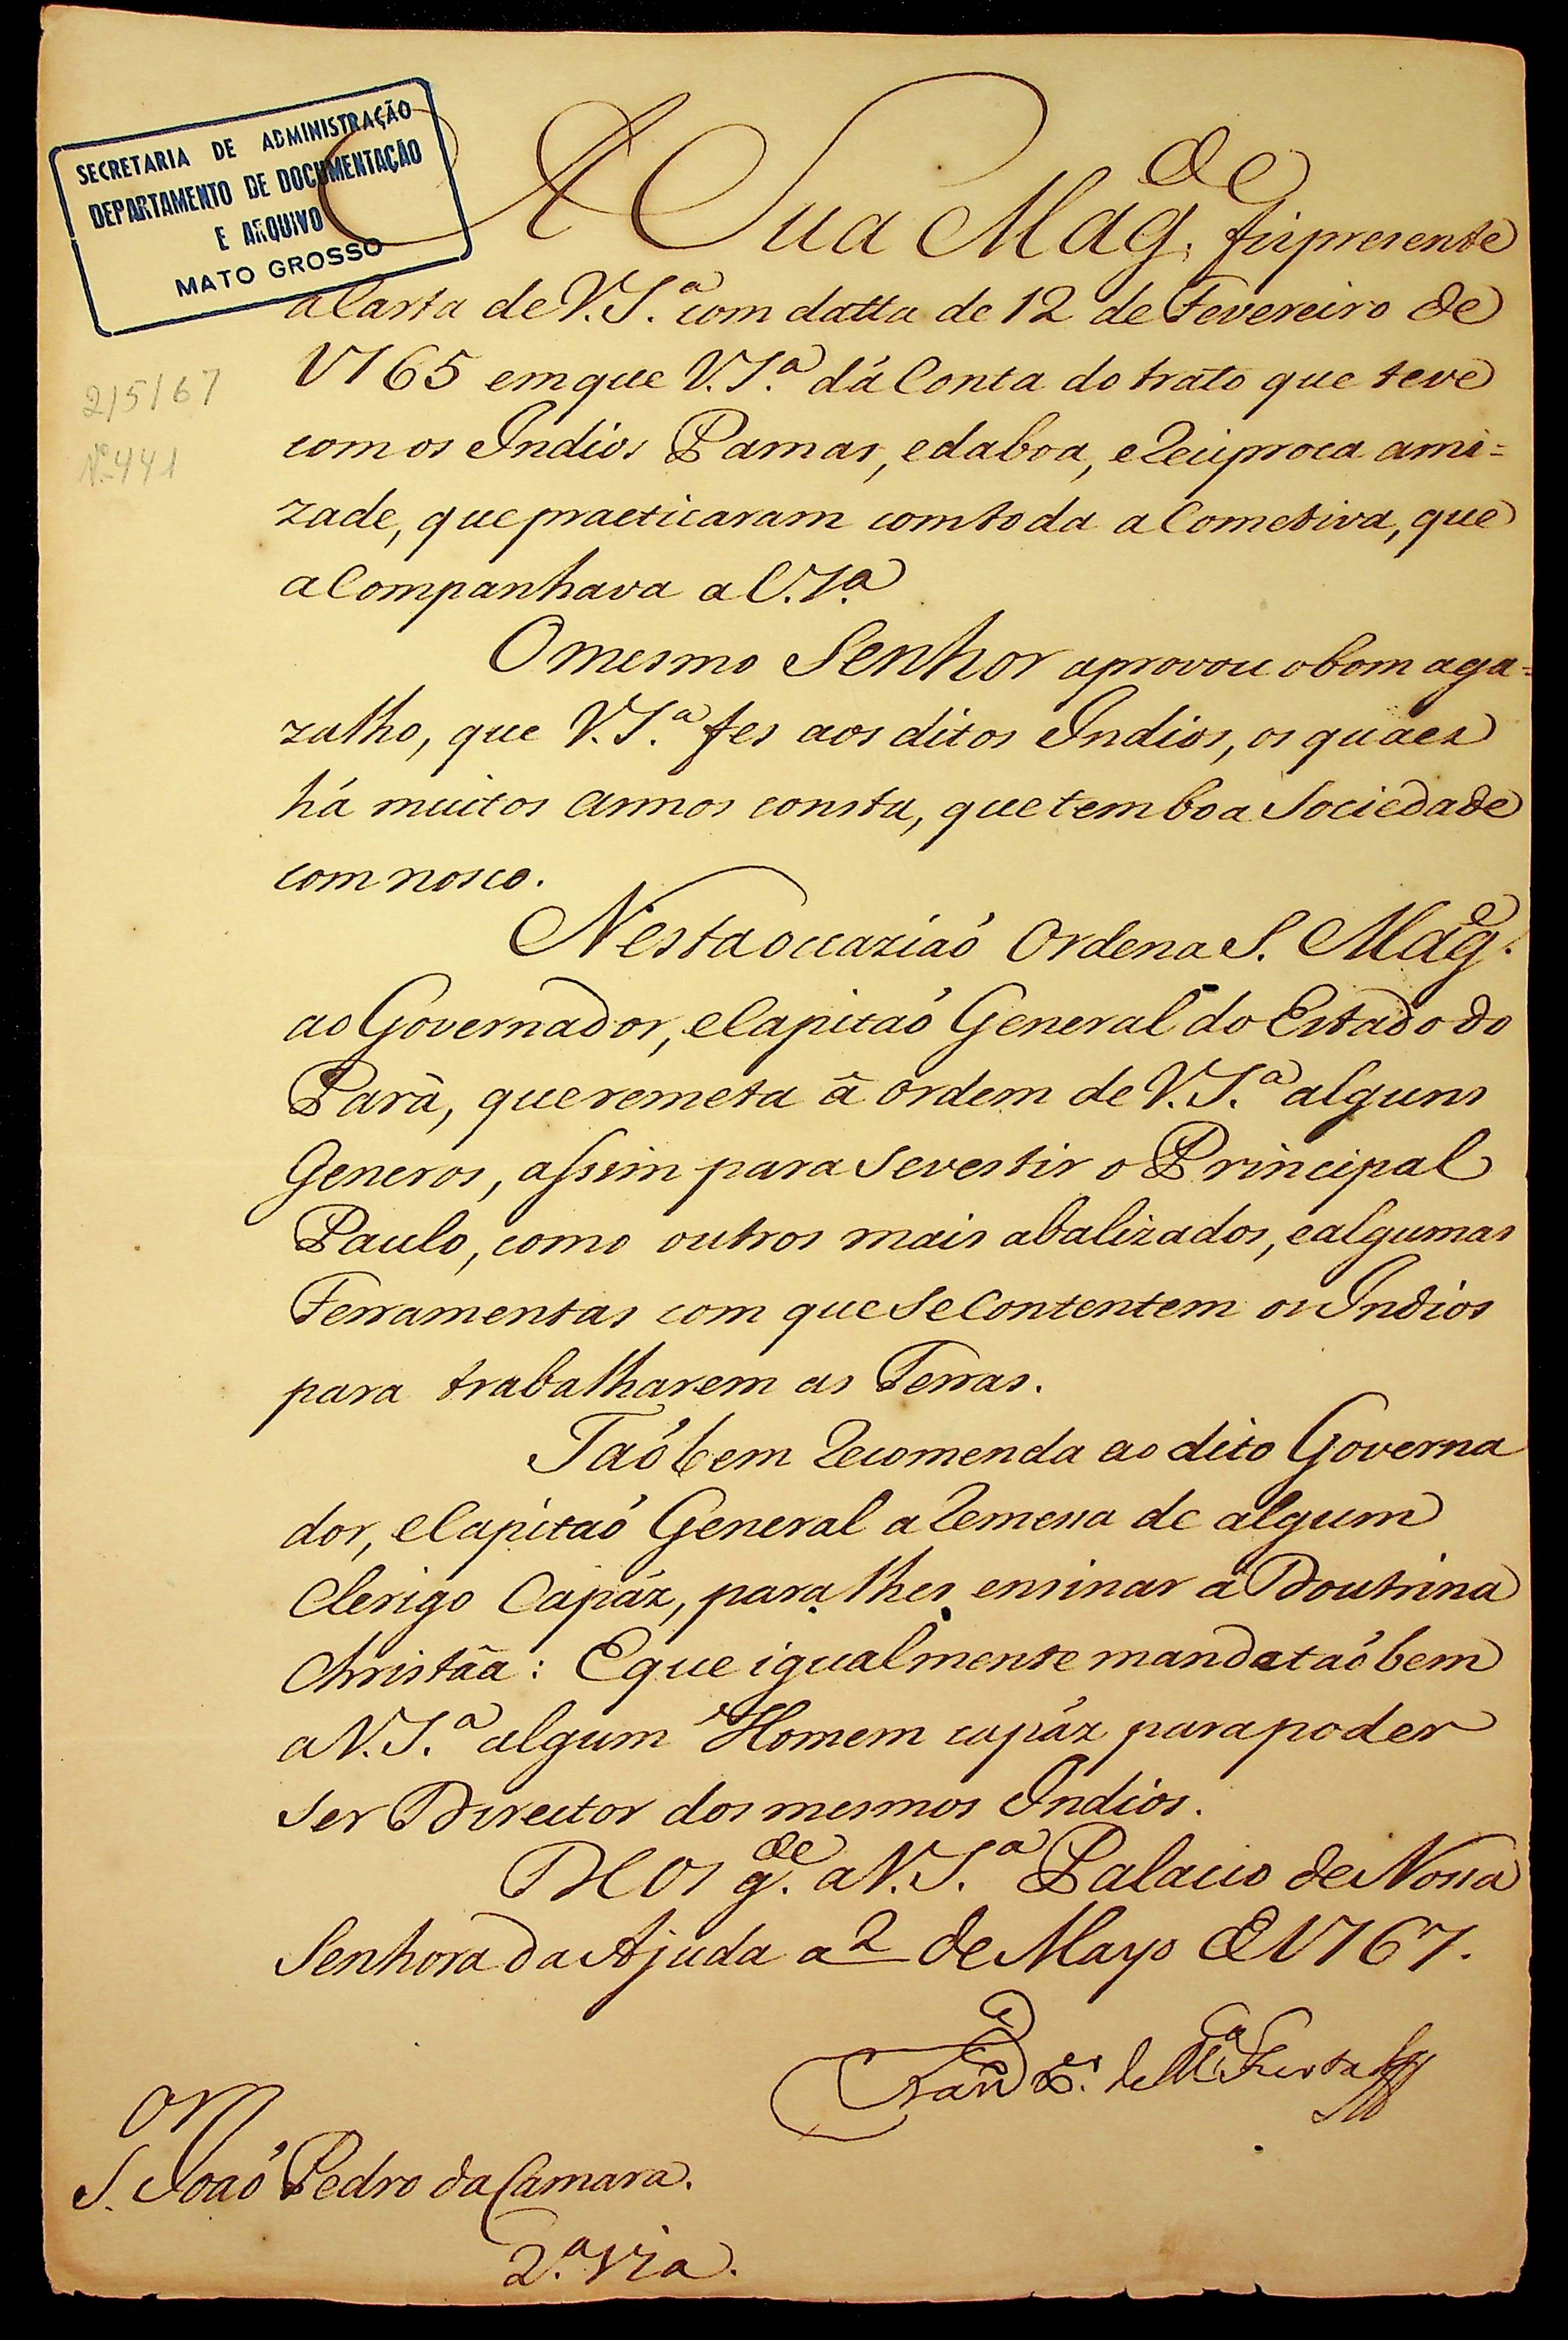 SECRETARIA DE ADMINISTRAÇÃO
DEPARTAMENTO DE DOCUMENTAÇÃO
E ARQUIVO
MATO GROSSO
2/5/67
Nº 441
A Sua Mag.de fiz presente
a Carta de V.S.ª com datta de 12 de Fevereiro de
1765 em que V.S.ª dá Conta do trato que teve
com os Indios Pamas, e da boa, e Reciproca ami=
zade, que practicaram com toda a Cometiva, que
a Companhava a V.S.ª
O mesmo Senhor aprovou o bom aga=
zalho, que V.S.ª fes aos ditos Indios, os quaes
há muitos annos consta, que tem boa Sociedade
com nosco.
Nesta occaziaó Ordena S. Mag.e
ao Governador, e Capitaó General do Estado do
Parâ, que remeta â ordem de V.S.ª alguns
Generos, assim para se vestir o Principal
Paulo, como outros mais abalizados, e algumas
Ferramentas com que se Contentem os Indios
para trabalharem as Terras.
Taóbem Recomenda ao dito Governa
dor, e Capitaó General a Remessa de algum
Clerigo Capáz, para lhes ensinar a Doutrina
Christãa: E que igualmente manda taóbem
a V.S.ª algum Homem capáz para poder
ser Director dos mesmos Indios.
Deos g.de a V.S.ª Palacio de Nossa
Senhora da Ajuda a 2 de Mayo de 1767.
Fran.co X.er de M.ça Furtado
S.or Joaó Pedro da Camara.
2.ª Via.